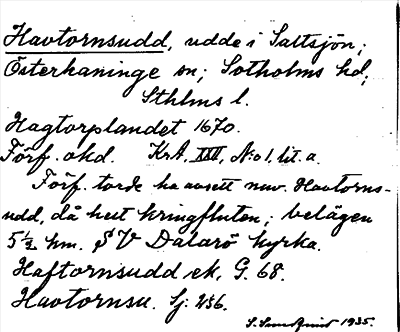 Havtornsudd, udde i Saltsjön;
Österhaninge sn; Sotholms hd;
Sthlms l.
Hagtorplandet 1670.
Förf. okd. KrA, XXV, No 1, lit. a.
Förf. torde ha avsett nuv. Havtorns-
udd, då helt kringfluten; belägen
5½ km. SV Dalarö kyrka.
Haftornsudd ek, G. 68.
Havtornsu. Sj. 256.
S. Sundquist 1935.